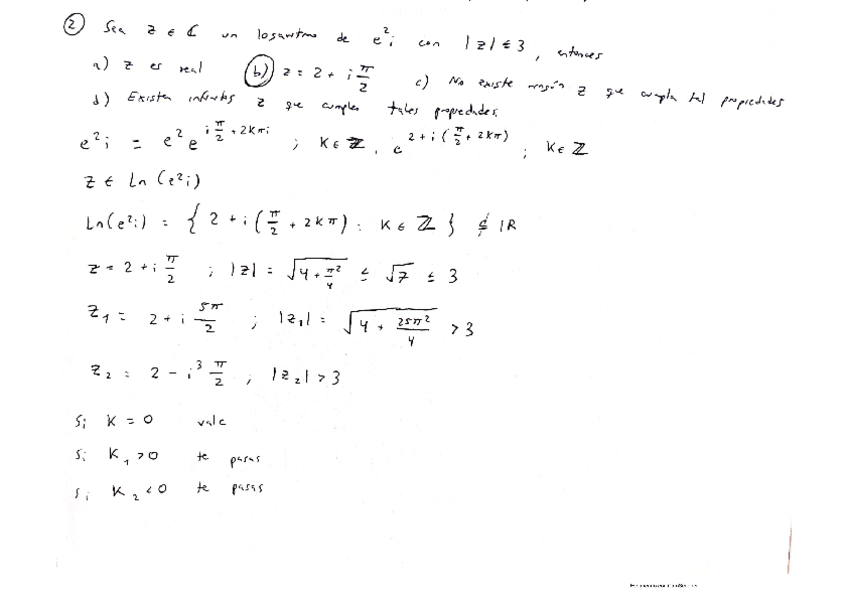 ② Sea z ∈ ℂ un logaritmo de e²i con |z| ≤ 3, entonces
a) z es real b) z = 2 + i π/2 c) No existe ningún z que cumpla tal propiedades
d) Existen infinitos z que cumplen tales propiedades.
e²i = e² e^(i π/2 + 2kπi) ; K ∈ ℤ, e^(2 + i(π/2 + 2kπ)) ; K ∈ ℤ
z ∈ Ln(e²i)
Ln(e²i) = { 2 + i(π/2 + 2kπ) : K ∈ ℤ } ⊄ ℝ
z = 2 + i π/2 ; |z| = √(4 + π²/4) ≤ √7 ≤ 3
z₁ = 2 + i 5π/2 ; |z₁| = √(4 + 25π²/4) > 3
z₂ = 2 - i 3 π/2 ; |z₂| > 3
Si K = 0 vale
Si K₁ > 0 te pasas
Si K₂ < 0 te pasas